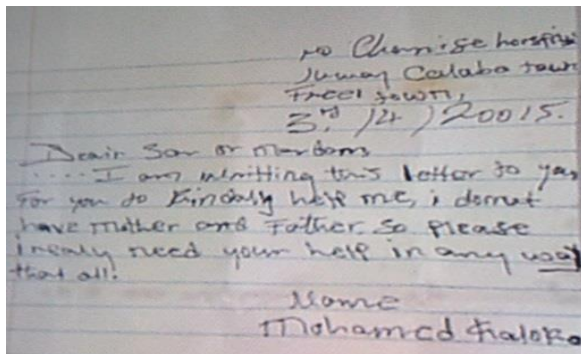 no Chanise hospital
Jumoy Calaba town
Freel town,
3rd /4 / 20015.
Deair Sar or Mardam
.....I am whritting this letter to you
For you to kindaly help me, i do not
have mother and Father. So please
i realy need your help in any way
that all.
Name
Mohamed Kaloko